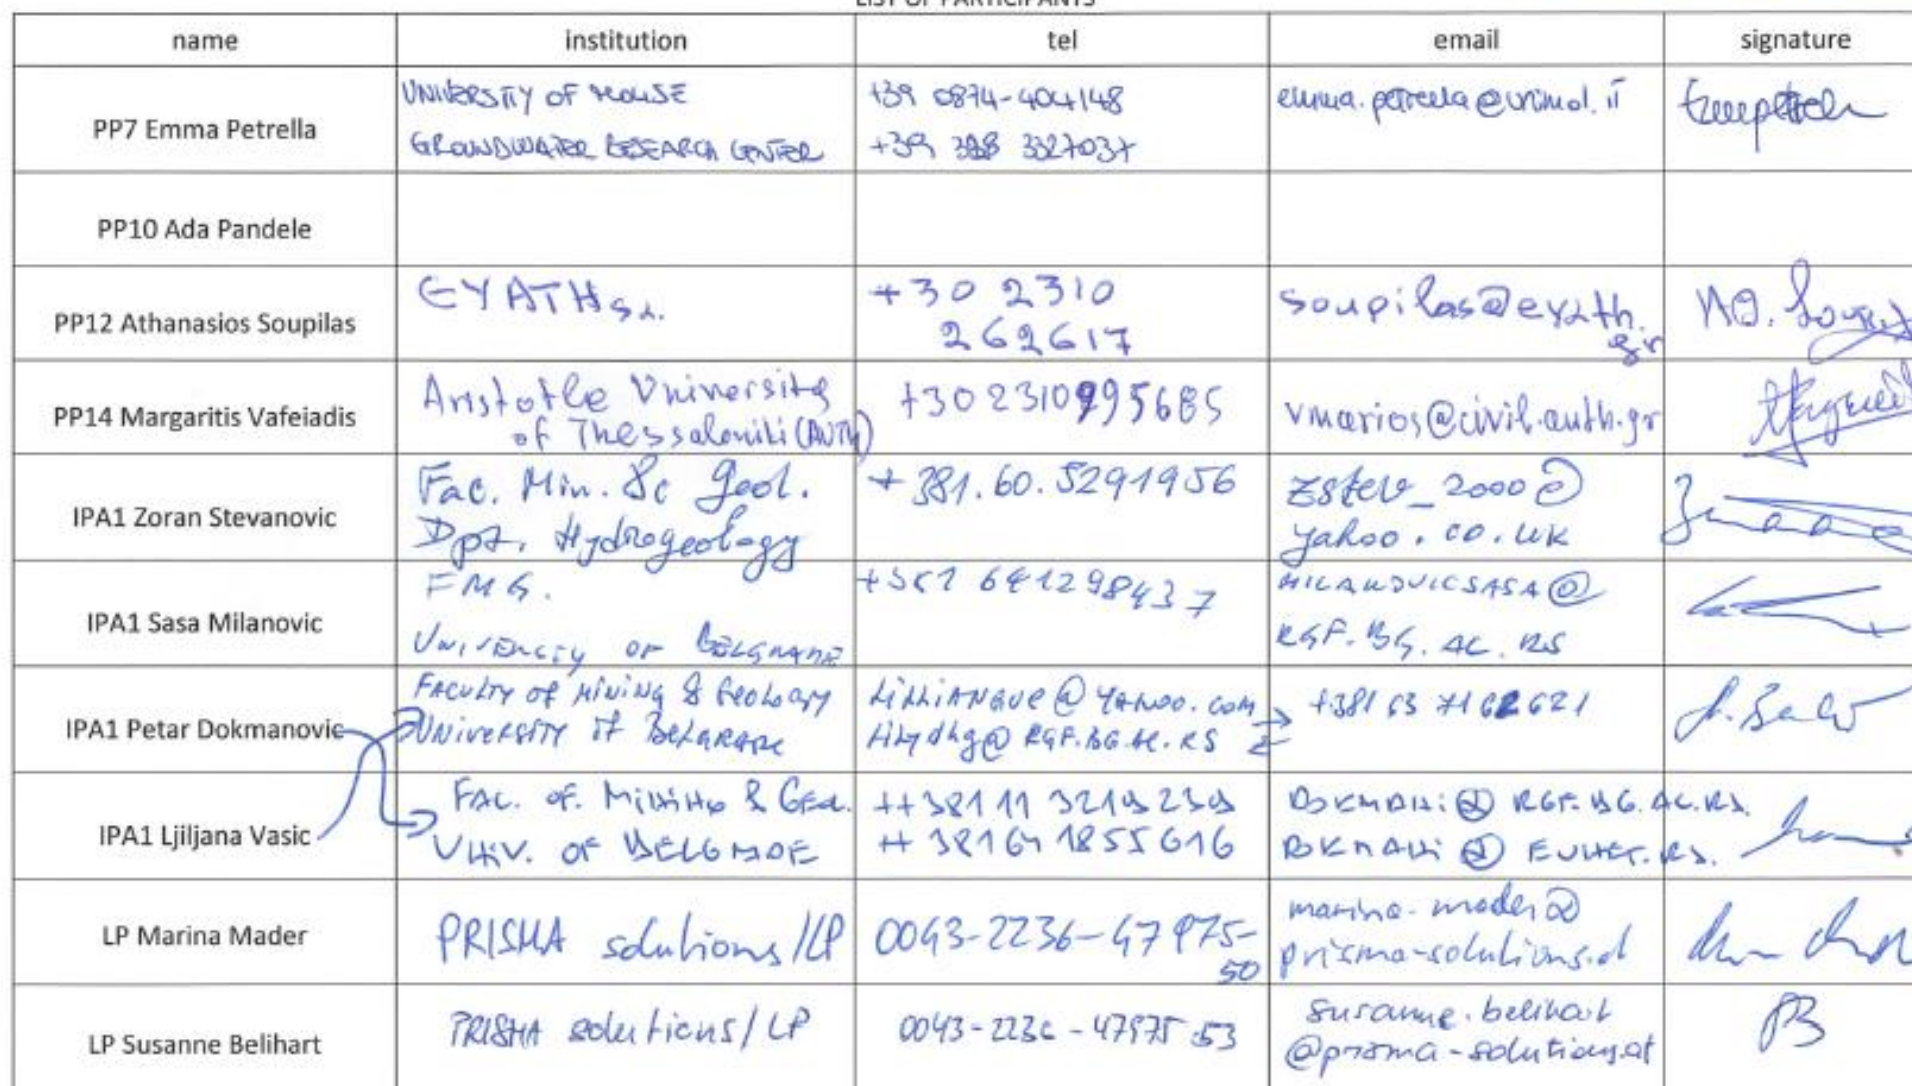 LIST OF PARTICIPANTS
name institution tel email signature
PP7 Emma Petrella
UNIVERSITY OF MOLISE
GROUNDWATER RESEARCH CENTER
+39 0874-404148
+39 328 3327037
emma.petrella@unimol.it
PP10 Ada Pandele
PP12 Athanasios Soupilas
EYATH s.a.
+30 2310
262617
soupilas@eyath.
gr
PP14 Margaritis Vafeiadis
Aristotle University
of Thessaloniki (AUTH)
+302310995685
vmarios@civil.auth.gr
IPA1 Zoran Stevanovic
Fac. Min. & Geol.
Dpt. Hydrogeology
+381.60.5291956
zstev_2000@
yahoo.co.uk
IPA1 Sasa Milanovic
FMG.
UNIVERCITY OF BELGRADE
+381 641298437
MILANOVICSASA@
RGF.BG.AC.RS
IPA1 Petar Dokmanovic
FACULTY OF MINING & GEOLOGY
UNIVERSITY OF BELGRADE
@YAHOO.COM
@RGF.BG.AC.RS
+381 63
IPA1 Ljiljana Vasic
FAC. OF. MINING & GEOL.
UNIV. OF BELGRADE
++381 11 3219239
++381 64 1855616
DOKMANI@RGF.BG.AC.RS.
DOKMANI@EUNET.RS.
LP Marina Mader
PRISMA solutions/LP
0043-2236-47975-
50
marina.mader@
prisma-solutions.at
LP Susanne Belihart
PRISMA solutions/LP
0043-2236-47975 53
susanne.belihart
@prisma-solutions.at